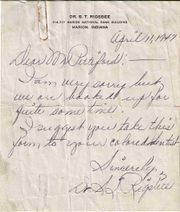 DR. S. T. RIGSBEE
MARION NATIONAL BANK BUILDING
MARION, INDIANA
April 11, 1947
Dear Mr Pettiford:-
I am very sorry but
we are booked up for
quite some time.
I suggest you take this
form to your colored dentist
Sincerely,
Dr. S. T. Rigsbee